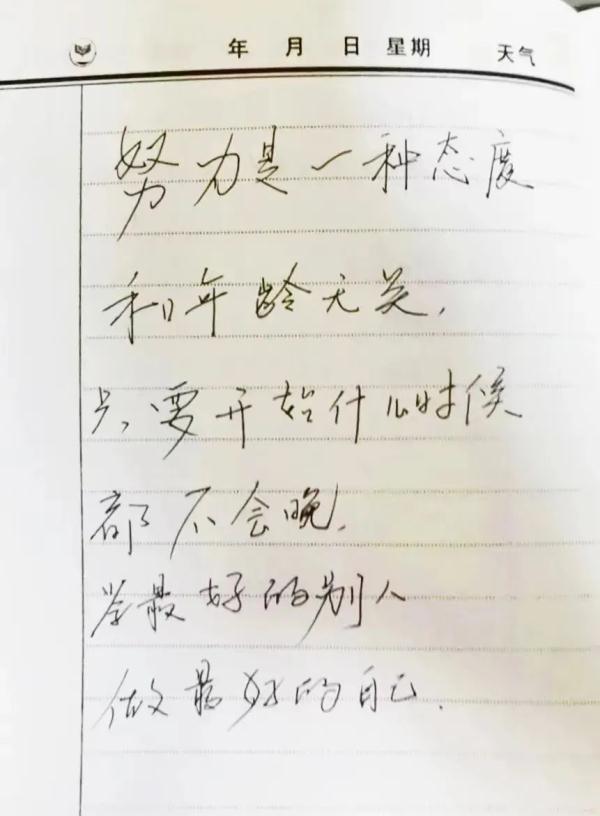 年 月 日 星期 天气
努力是一种态度
和年龄无关,
只要开始什么时候
都不会晚.
学最好的别人
做最好的自己.